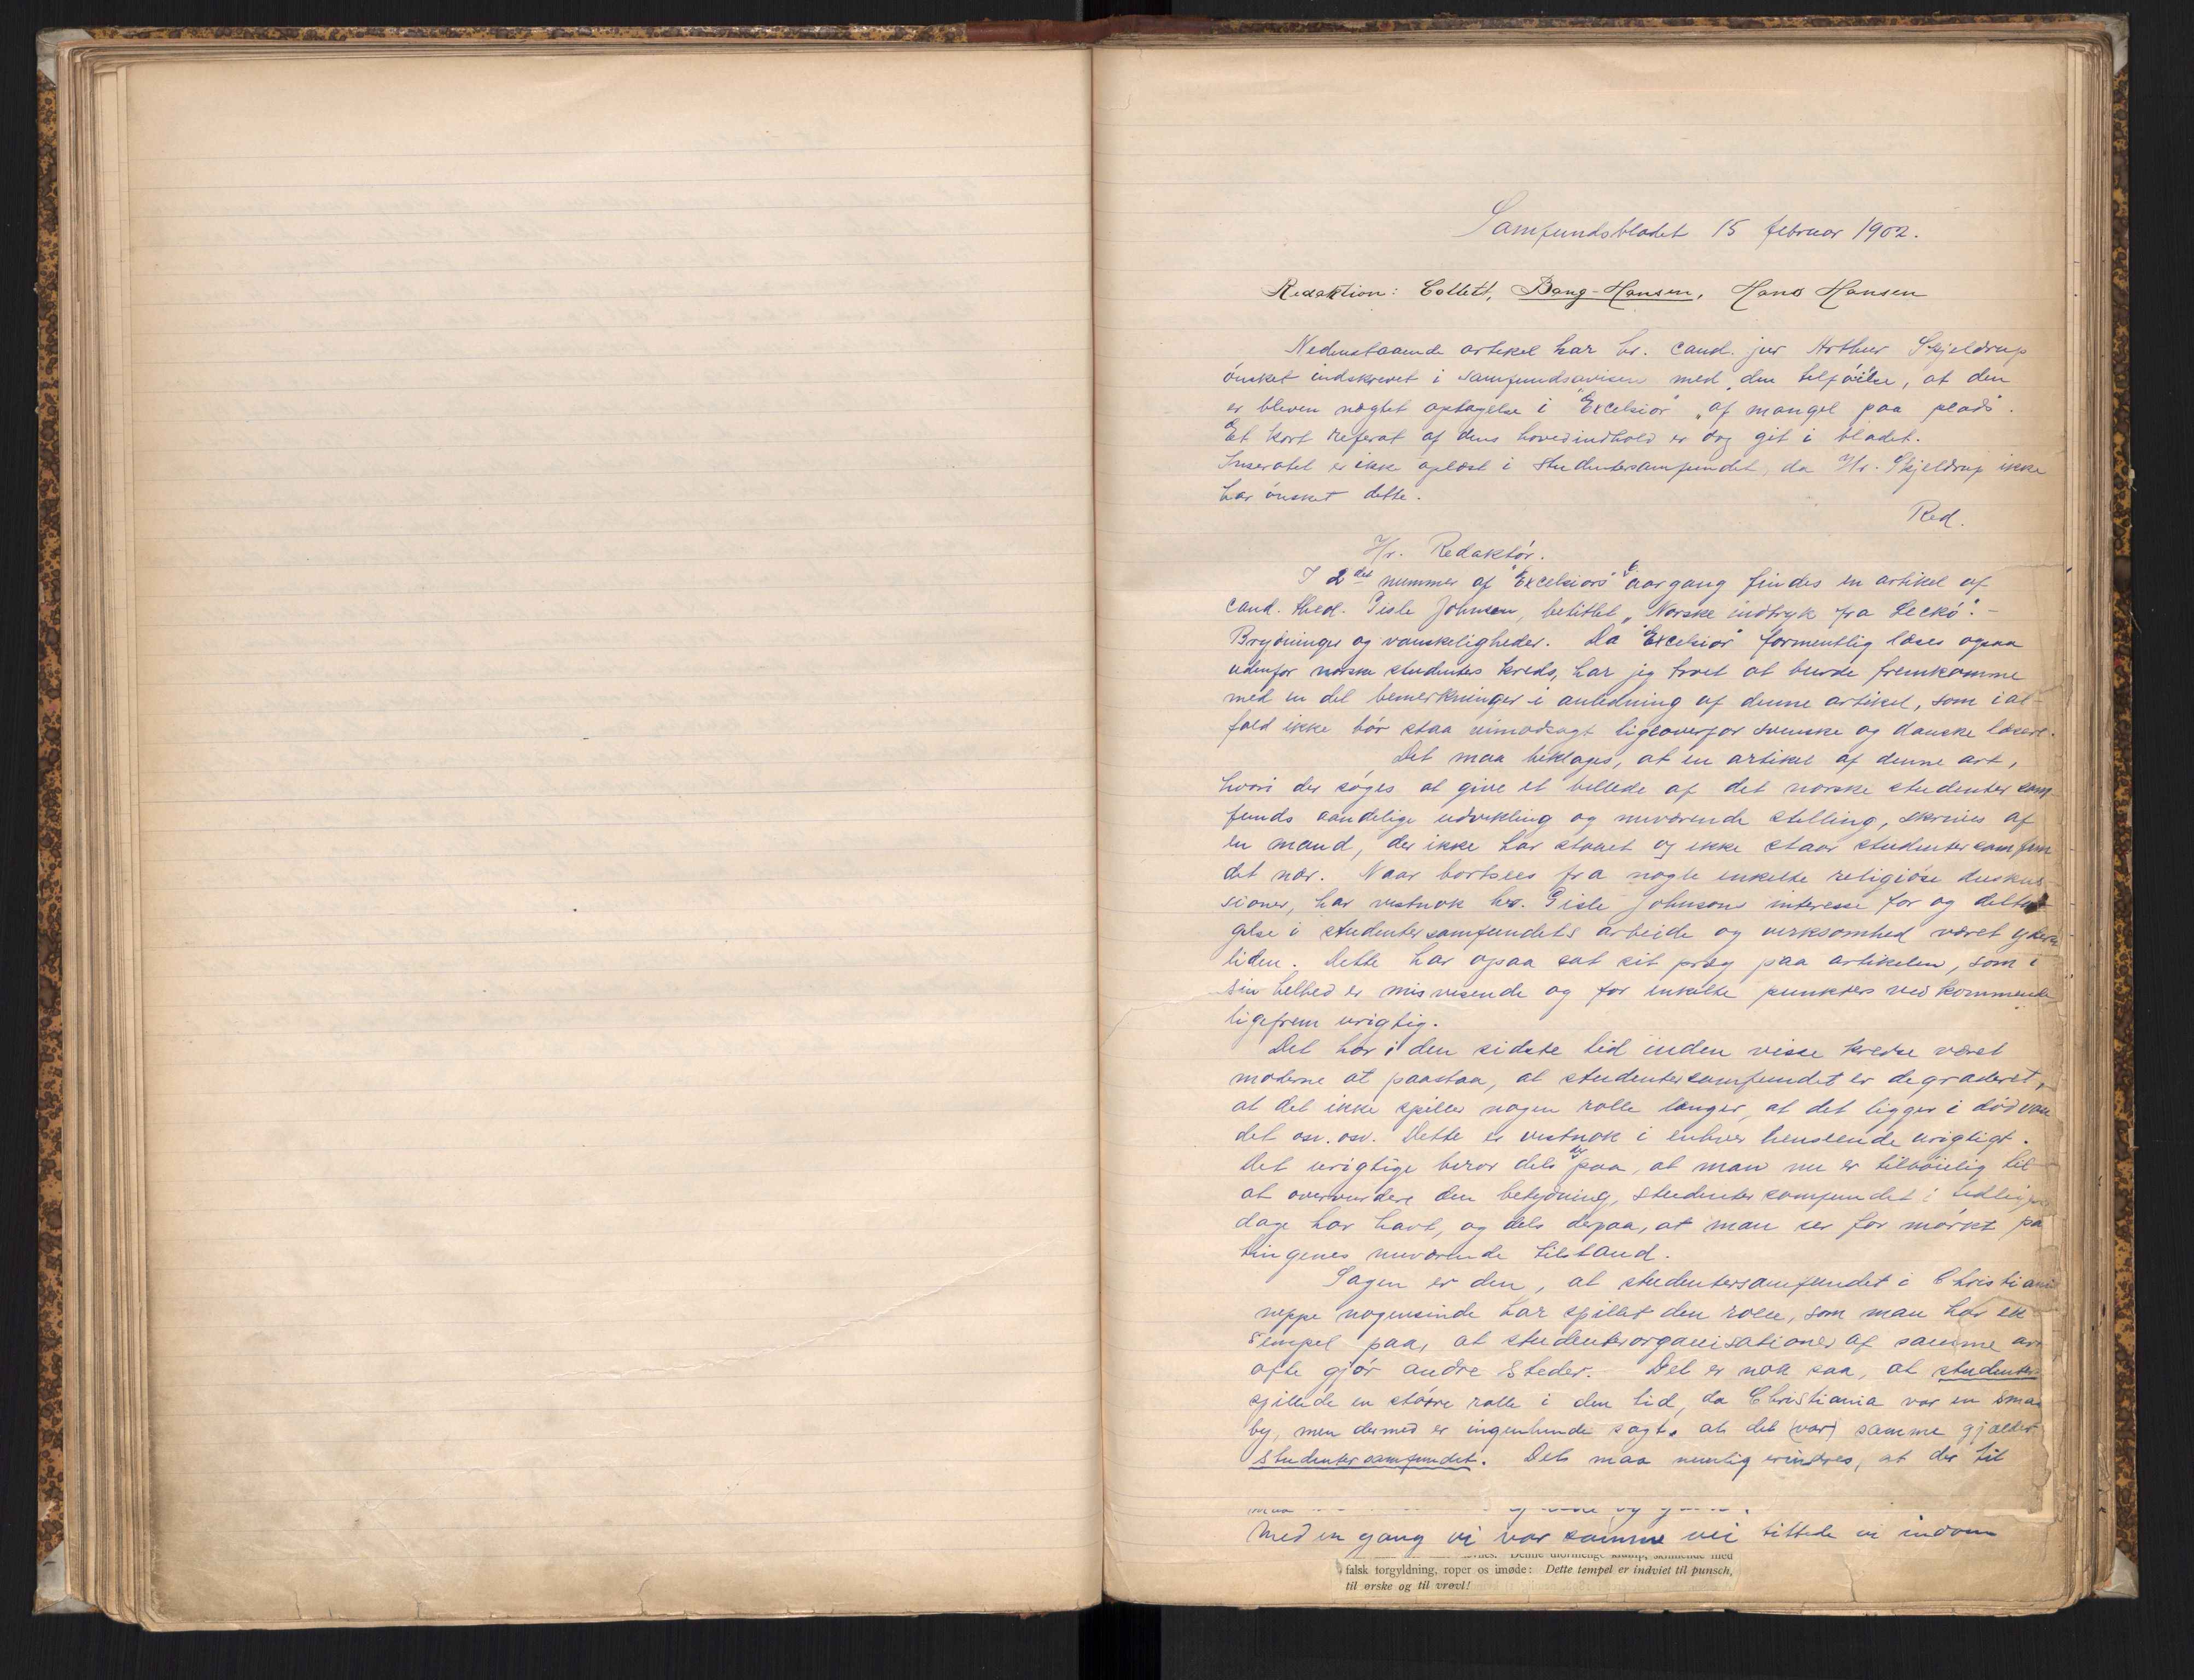 Samfundsbladet 15 februar 1902.
Redaktion: Collett, Bang-Hansen, Hans Hansen
Nedenstaaende artikel har hr. cand. jur Arthur Skjeldrup
ønsket indskrevet i samfundsavisen med den tilføielse, at den
er bleven nægtet optagelse i "Excelsior" "af mangel paa plads".
Et kort referat af dens hovedindhold er dog git i bladet.
Inseratet er ikke oplæst i Studentersamfundet, da Hr. Skjeldrup ikke
har ønsket dette.
Red.
Hr. Redaktør.
I 2det nummer af "Excelsiors" aargang findes en artikel af
cand. theol. Gisle Johnson, betitlet "Norske indtryk fra Leckö". -
Brydninger og vanskeligheder. Da "Excelsior" formentlig læses ogsaa
udenfor norske studenters kreds, har jeg troet at burde fremkomme
med en del bemerkninger i anledning af denne artikel, som ial-
fald ikke bør staa uimodsagt ligeoverfor svenske og danske læsere.
Det maa beklages, at en artikel af denne art,
hvori der søges at give et billede af det norske studentersam-
funds aandelige udvikling og nuværende stilling, skrives af
en mand, der ikke har staaet og ikke staar studentersamfun
det nær. Naar bortsees fra nogle enkelte religiøse diskus-
sioner, har vistnok hr. Gisle Johnsons interesse for og delta-
gelse i studentersamfundets arbeide og virksomhed været yderst
liden. Dette har ogsaa sat sit præg paa artikelen, som i
sin helhed er misvisende og for enkelte punkters vedkommende
ligefrem urigtig.
Det har i den sidste tid inden visse kredse været
moderne at paastaa, at studentersamfundet er degraderet,
at det ikke spiller nogen rolle længer, at det ligger i dødvan
det osv. osv. Dette er vistnok i enhver henseende urigtigt.
Det urigtige beror dels paa, at man nu er tilbøielig til
at overvurdere den betydning, studentersamfundet i tidligere
dage har havt, og dels derpaa, at man ser for mørkt pa
tingenes nuværende tilstand.
Sagen er den, at studentersamfundet i Christiania
neppe nogensinde har spillet den rolle, som man har ek-
sempel paa, at studenterorganisationer af samme art
ofte gjør andre steder. Det er nok saa, at studenter-
spillede en større rolle i den tid, da Christiania var en smaa
by, men dermed er ingenlunde sagt, at det (var) samme gjælder
studentersamfundet. Det maa nemlig erindres, at der til
Med en gang vi var samme vei tittede vi indom
falsk forgyldning, roper os imøde: Dette tempel er indviet til punsch,
til ørske og til vrøvl!